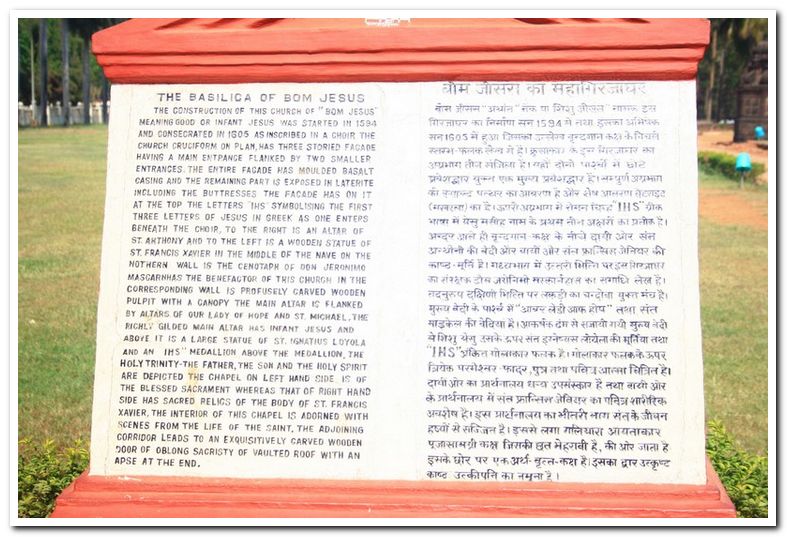 THE BASILICA OF BOM JESUS
THE CONSTRUCTION OF THIS CHURCH OF "BOM JESUS'
MEANING GOOD OR INFANT JESUS WAS STARTED IN 1594
AND CONSECRATED IN 1605 AS INSCRIBED IN A CHOIR, THE
CHURCH CRUCIFORM ON PLAN, HAS THREE STORIED FACADE
HAVING A MAIN ENTRANCE FLANKED BY TWO SMALLER
ENTRANCES. THE ENTIRE FACADE HAS MOULDED BASALT
CASING AND THE REMAINING PART IS EXPOSED IN LATERITE
INCLUDING THE BUTTRESSES THE FACADE HAS ON IT
AT THE TOP THE LETTERS 'IHS' SYMBOLISING THE FIRST
THREE LETTERS OF JESUS IN GREEK AS ONE ENTERS
BENEATH THE CHOIR, TO THE RIGHT IS AN ALTAR OF
ST. ANTHONY AND TO THE LEFT IS A WOODEN STATUE OF
ST. FRANCIS XAVIER IN THE MIDDLE OF THE NAVE ON THE
NOTHERN WALL IS THE CENOTAPH OF DON JERONIMO
MASCARNHAS THE BENEFACTOR OF THIS CHURCH IN THE
CORRESPONDING WALL IS PROFUSELY CARVED WOODEN
PULPIT WITH A CANOPY THE MAIN ALTAR IS FLANKED
BY ALTARS OF OUR LADY OF HOPE AND ST. MICHAEL, THE
RICHLY GILDED MAIN ALTAR HAS INFANT JESUS AND
ABOVE IT IS A LARGE STATUE OF ST. IGNATIUS LOYOLA
AND AN IHS" MEDALLION ABOVE THE MEDALLION, THE
HOLY TRINITY-THE FATHER, THE SON AND THE HOLY SPIRIT
ARE DEPICTED THE CHAPEL ON LEFT HAND SIDE. IS OF
THE BLESSED SACRAMENT WHEREAS THAT OF RIGHT HAND
SIDE HAS SACRED RELICS OF THE BODY OF ST. FRANCIS
XAVIER, THE INTERIOR OF THIS CHAPEL IS ADORNED WITH
SCENES FROM THE LIFE OF THE SAINT, THE ADJOINING
CORRIDOR LEADS TO AN EXQUISITIVELY CARVED WOODEN
DOOR OF OBLONG SACRISTY OF VAULTED ROOF WITH AN
APSE AT THE END.
बौम जीसस का महागिरजाघर
बौम जीसस "अर्थात" नेक या शिशु जीसस" नामक इस
गिरजाघर का निर्माण सन 1594 में तथा इसका अभिषेक
सन 1605 में हुआ जिसका उल्लेख वृन्दगान कक्ष के निचले
स्तम्भ-फलक लेख में है।
अग्रभाग तीन मंजिला है। यहां दोनो पार्श्वो में छोटे
प्रवेशद्धार युक्त एक मुख्य प्रवेशद्धार है। सम्पूर्ण अग्रभाग
पत्थर का आवरण है और शेष
का है। ऊपरी अग्रभाग में रोमन चिन्ह "IHS" ग्रीक
भाषा में येसु मसीह नाम के प्रथम तीन अक्षरों का प्रतीक है।
अन्दर आते ही वृन्दगान-कक्ष के नीचे दायी ओर संत
अन्थोनी की बेदी और बायी ओर संत फ्रान्सिस जेवियर की
काष्ठ-मूर्ति है। मध्यभाग में उत्तरी भित्ति पर इस गिरजाघर
का संरक्षक डौन जेरोनिमो का समाधि लेख है।
तदनुरूप दक्षिणी भित्ति पर लकड़ी का चन्दोवा युक्त मंच है।
मुख्य बेदी के पार्श्व में "आवर लेडी आफ होप" तथा संत
माइकेल की बेदिया है। आकर्षक ढंग से सजायी गयी मुख्य बेदी
में शिशु येसु उसके ऊपर संत इग्नेष्यस लोयोला की मूर्ति व तथा
"IHS" अंकित गोलाकार फलक है। गोलाकार फलक के ऊपर
त्रियेक परमेश्वर-फादर, पुत्र तथा पवित्र आत्मा चित्रित है।
दायी ओर का प्रार्थनालय धन्य उपसंस्कार है तथा बायी ओर
के प्रार्थनालय में संत फ्रान्सिस जेवियर का पवित्र शारीरिक
अवशेष है। इस प्रार्थनालय का भीतरी भाग संत के जीवन
दृश्यों से सज्जित है। इससे लगा गलियारा आयताकार
पूजासामग्री कक्ष जिसकी छत मेहराबी है, की ओर जाता है
इसके छोर पर एक अर्थ-वृत्त-कक्ष है। इसका द्वार उत्कृष्ट
काष्ठ उत्कीर्पन का नमूना है।